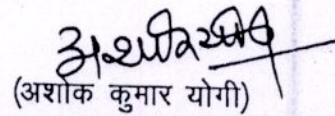 (अशोक कुमार योगी)